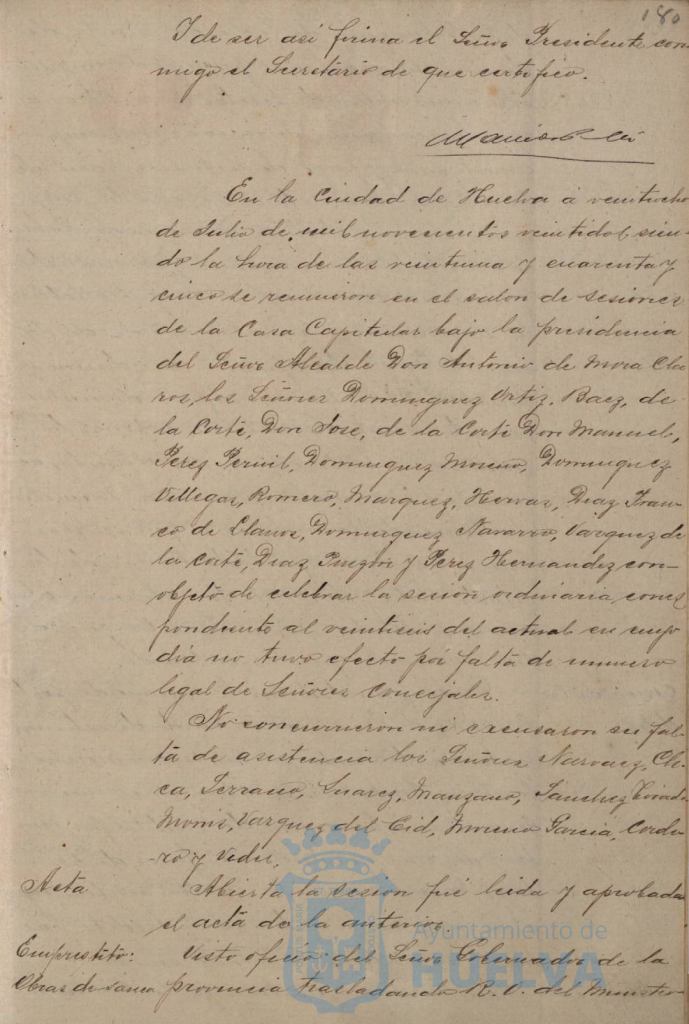 180
Y de ser así firma el Señor Presidente con
migo el Secretario de que certifico.
En la Ciudad de Huelva á veintiocho
de Julio de mil novecientos veintidos, sien-
do la hora de las veintiuna y cuarenta y
cinco se reunieron en el salon de sesiones
de la Casa Capitular bajo la presidencia
del Señor Alcalde Don Antonio de Mora Cla
ros, los Señores Dominguez Ortiz, Baez, de
la Corte, Don Jose, de la Corte Don Manuel,
Perez Pernil, Dominguez Moreno, Dominguez
Villegas, Romero, Marquez, Hervas, Diaz Fran-
co de Llanos, Dominguez Navarro, Vazquez de
la Corte, Diaz Pinzón y Perez Hernandez con
objeto de celebrar la sesión ordinaria corres
pondiente al veintiseis del actual en cuyo
día no tuvo efecto por falta de numero
legal de Señores Concejales.
No concurrieron ni excusaron su fal-
ta de asistencia los Señores Narvaez, Cli
ca, Serrano, Suarez, Manzano, Sanchez
Monis, Vazquez del Cid, Moreno Garcia, Corde
ro y Vides.
Acta
Abierta la sesión fué leida y aprobada
el acta de la anterior.
Emprestito:
Obras de sanea
Visto oficio del Señor Gobernador de la
provincia trasladando R. O. del Ministe
Ayuntamiento de
HUELVA